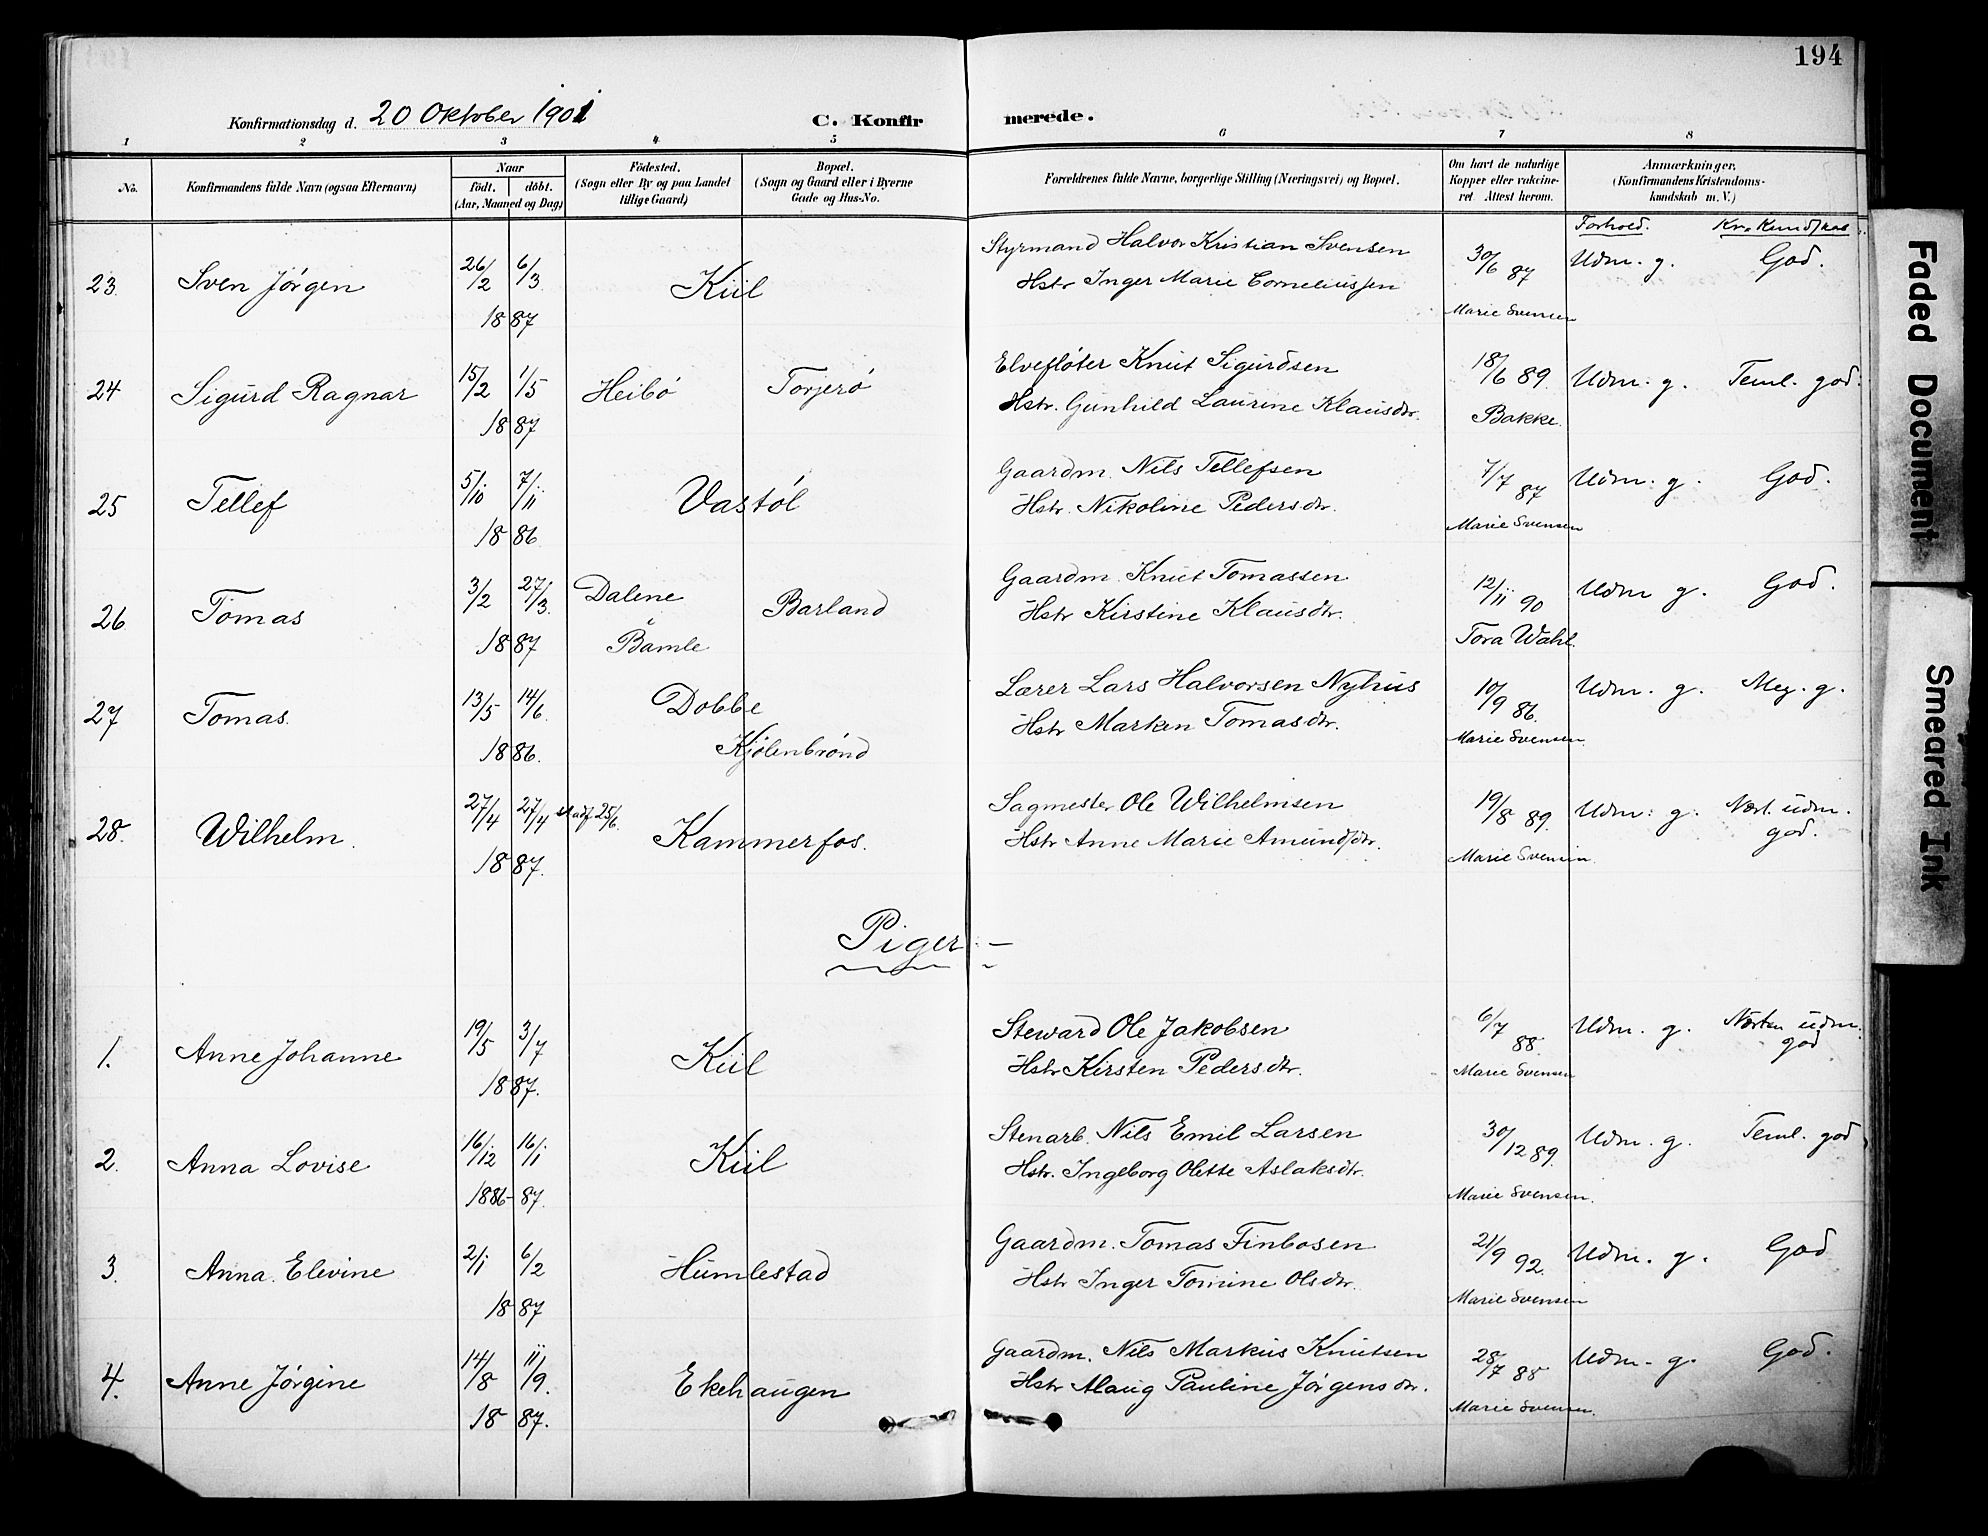 194
Konfirmationsdag d. 20 Oktober 1901
C. Konfirmerede.
1 2 3 4 5 6 7 8
No.
Konfirmandens fulde Navn (ogsaa Efternavn)
Naar
födt. döbt.
(Aar, Maaned og Dag)
Födested.
(Sogn eller By og paa Landet
tillige Gaard)
Bopæl.
(Sogn og Gaard eller i Byerne
Gade og Hus-No.
Forældrenes fulde Navne, borgerlige Stilling (Næringsvei) og Bopæl.
Om havt de naturlige
Kopper eller vakcine-
ret Attest herom.
Anmærkninger,
(Konfirmandens Kristendoms-
kundskab m. V.)
Forhold. Kr. Kundskab
23. Sven Jörgen 26/2 6/3 1887 Kiil
Styrmand Halvor Kristian Svensen
Hstr Inger Marie Corneliussen
30/6 87 Marie Svensen Udm. g. God.
24 Sigurd Ragnar 15/2 1/5 1887 Heibö Torjerö
Elveflöter Knut Sigurdsen
Hstr. Gunhild Laurine Klausdtr.
18/6 89. Bakke. Udm. g. Teml. god.
25 Tellef 5/10 7/11 1886 Vastöl
Gaardm. Nils Tellefsen
Hstr. Nikoline Pedersdtr.
7/7 87 Marie Svensen Udm. g. God.
26 Tomas 3/2 27/3. 1887 Dalene Bamle Barland
Gaardm. Knut Tomassen
Hstr Kirstine Klausdtr.
12/11 90 Tora Wahl. Udm g. God.
27 Tomas. 13/5 14/6. 1886. Dobbe
Kjölenbrönd
Lærer Lars Halvorsen Nyhus
Hstr Marken Tomasdtr.
10/9 86. Marie Svensen. Udm. g. Meg. g.
28. Wilhelm. 27/4 27/4 stadf 25/6. 1887. Kammerfos.
Sagmester Ole Wilhelmsen
Hstr Anne Marie Amundsdtr.
19/8 89. Marie Svensen. Udm. g. Nært. udm.
god.
Piger:—
1. Anne Johanne 19/5 3/7 1887. Kiil
Steward Ole Jakobsen
Hstr Kirsten Pedersdtr.
6/7 88. Marie Svensen Udm. g. Næsten udm.
god
2. Anna Lovise 16/12 16/1 1886-87. Kiil
Stenarb. Nils Emil Larsen
Hstr. Ingeborg Olette Aslaksdtr.
30/12 89. Marie Svensen. Udm. g. Teml. god
3. Anna Elevine 2/1 6/2 1887 Humlestad
Gaardm. Tomas Finbosen
Hstr Inger Tomine Olsdtr.
21/9 92. Marie Svensen Udm. g. God
4. Anne Jörgine 14/8 11/9. 1887. Ekehaugen
Gaardm. Nils Markus Knutsen
Hstr Alaug Pauline Jörgensdtr.
28/7 88 Marie Svensen. Udm. g. God.
Faded Document
Smeared Ink